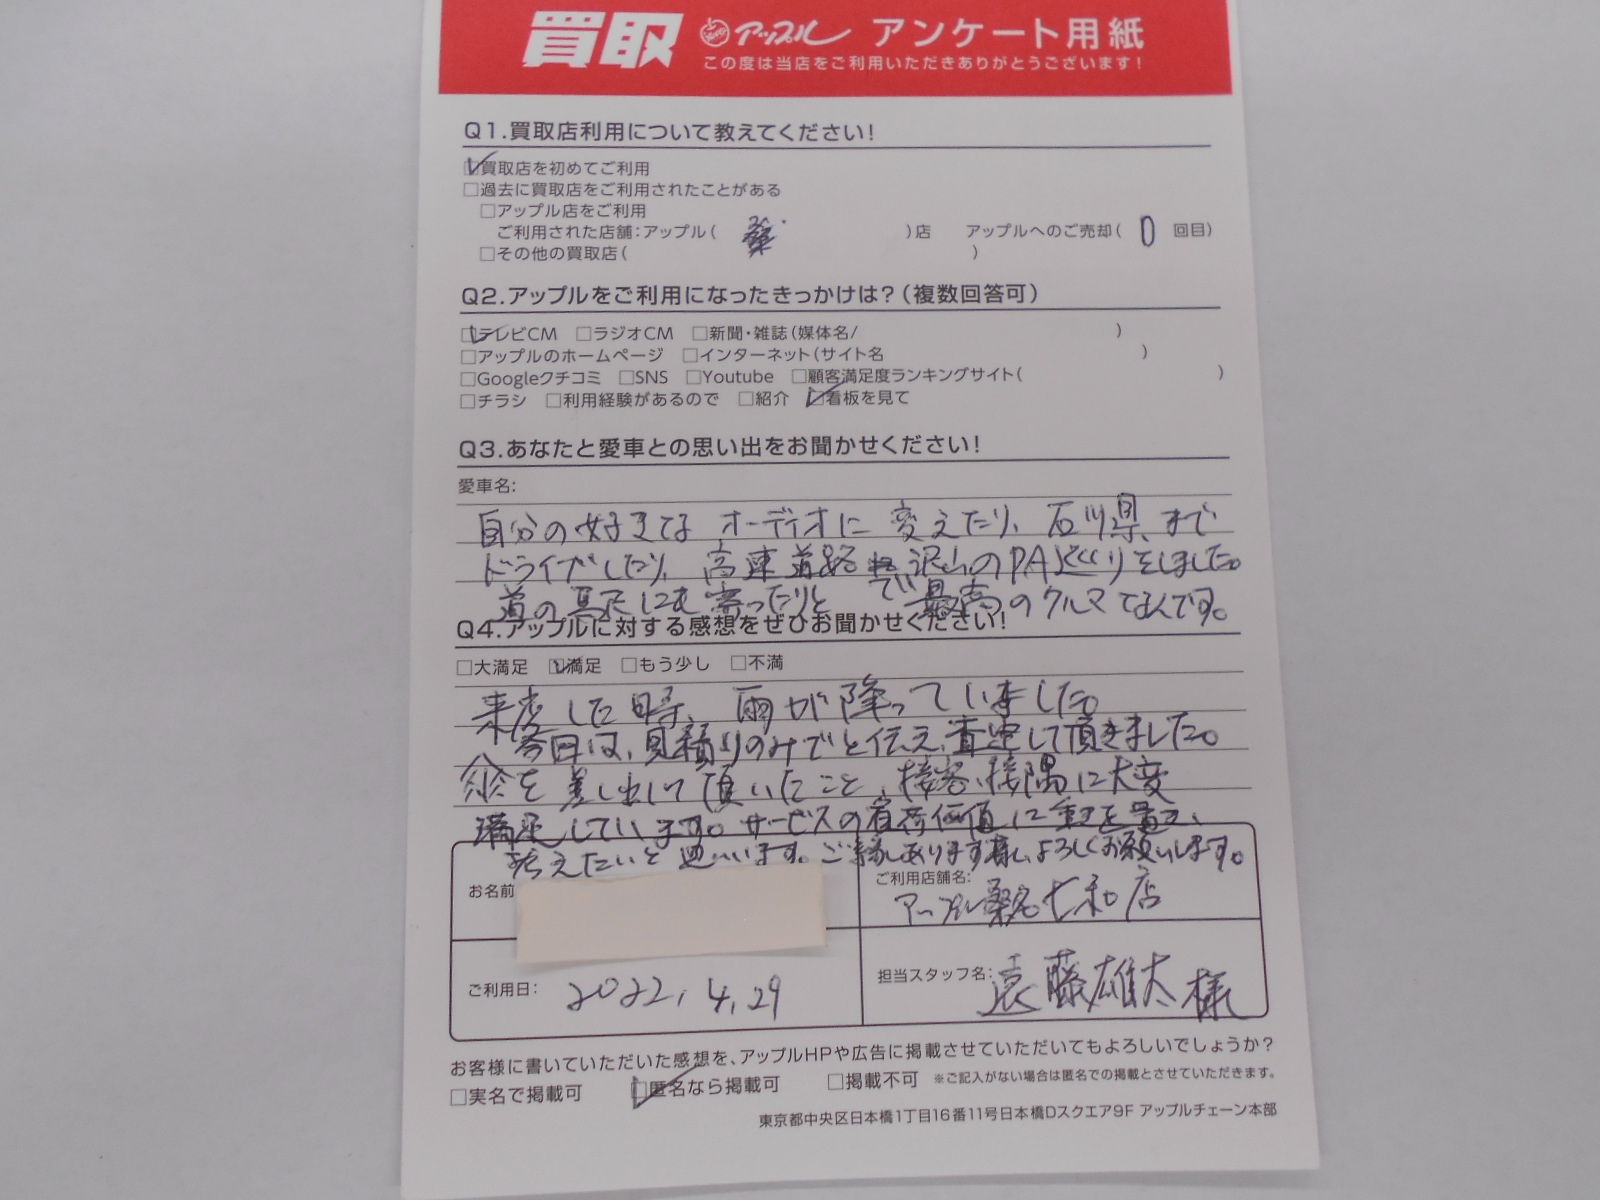 買取 アップル アンケート用紙
この度は当店をご利用いただきありがとうございます!
Q1.買取店利用について教えてください!
□買取店を初めてご利用
□過去に買取店をご利用されたことがある
□アップル店をご利用
ご利用された店舗:アップル( )店 アップルへのご売却( 0 回目)
□その他の買取店( )
Q2.アップルをご利用になったきっかけは?(複数回答可)
□テレビCM □ラジオCM □新聞・雑誌(媒体名/ )
□アップルのホームページ □インターネット(サイト名 )
□Googleクチコミ □SNS □Youtube □顧客満足度ランキングサイト( )
□チラシ □利用経験があるので □紹介 □看板を見て
Q3.あなたと愛車との思い出をお聞かせください!
愛車名:
自分の好きな オーディオに 変えたり、石川県まで
ドライブしたり、高速道路 沢山のPA巡りをしました。
道の駅にも寄ったりと で 最高のクルマなんです。
Q4.アップルに対する感想をぜひお聞かせください!
□大満足 □満足 □もう少し □不満
来店した時、雨が降っていました。
今日は、見積りのみでと伝え、査定して頂きました。
傘を差し出して頂いたこと、接客、接隅に大変
満足しています。サービスの 価値に重きを置き、
考えたいと思います。ご縁あります様、よろしくお願いします。
お名前
ご利用店舗名:
アップル桑名七和店
ご利用日: 2022.4.29
担当スタッフ名: 遠藤雄太様
お客様に書いていただいた感想を、アップルHPや広告に掲載させていただいてもよろしいでしょうか?
□実名で掲載可 □匿名なら掲載可 □掲載不可 ※ご記入がない場合は匿名での掲載とさせていただきます。
東京都中央区日本橋1丁目16番11号日本橋Dスクエア9F アップルチェーン本部